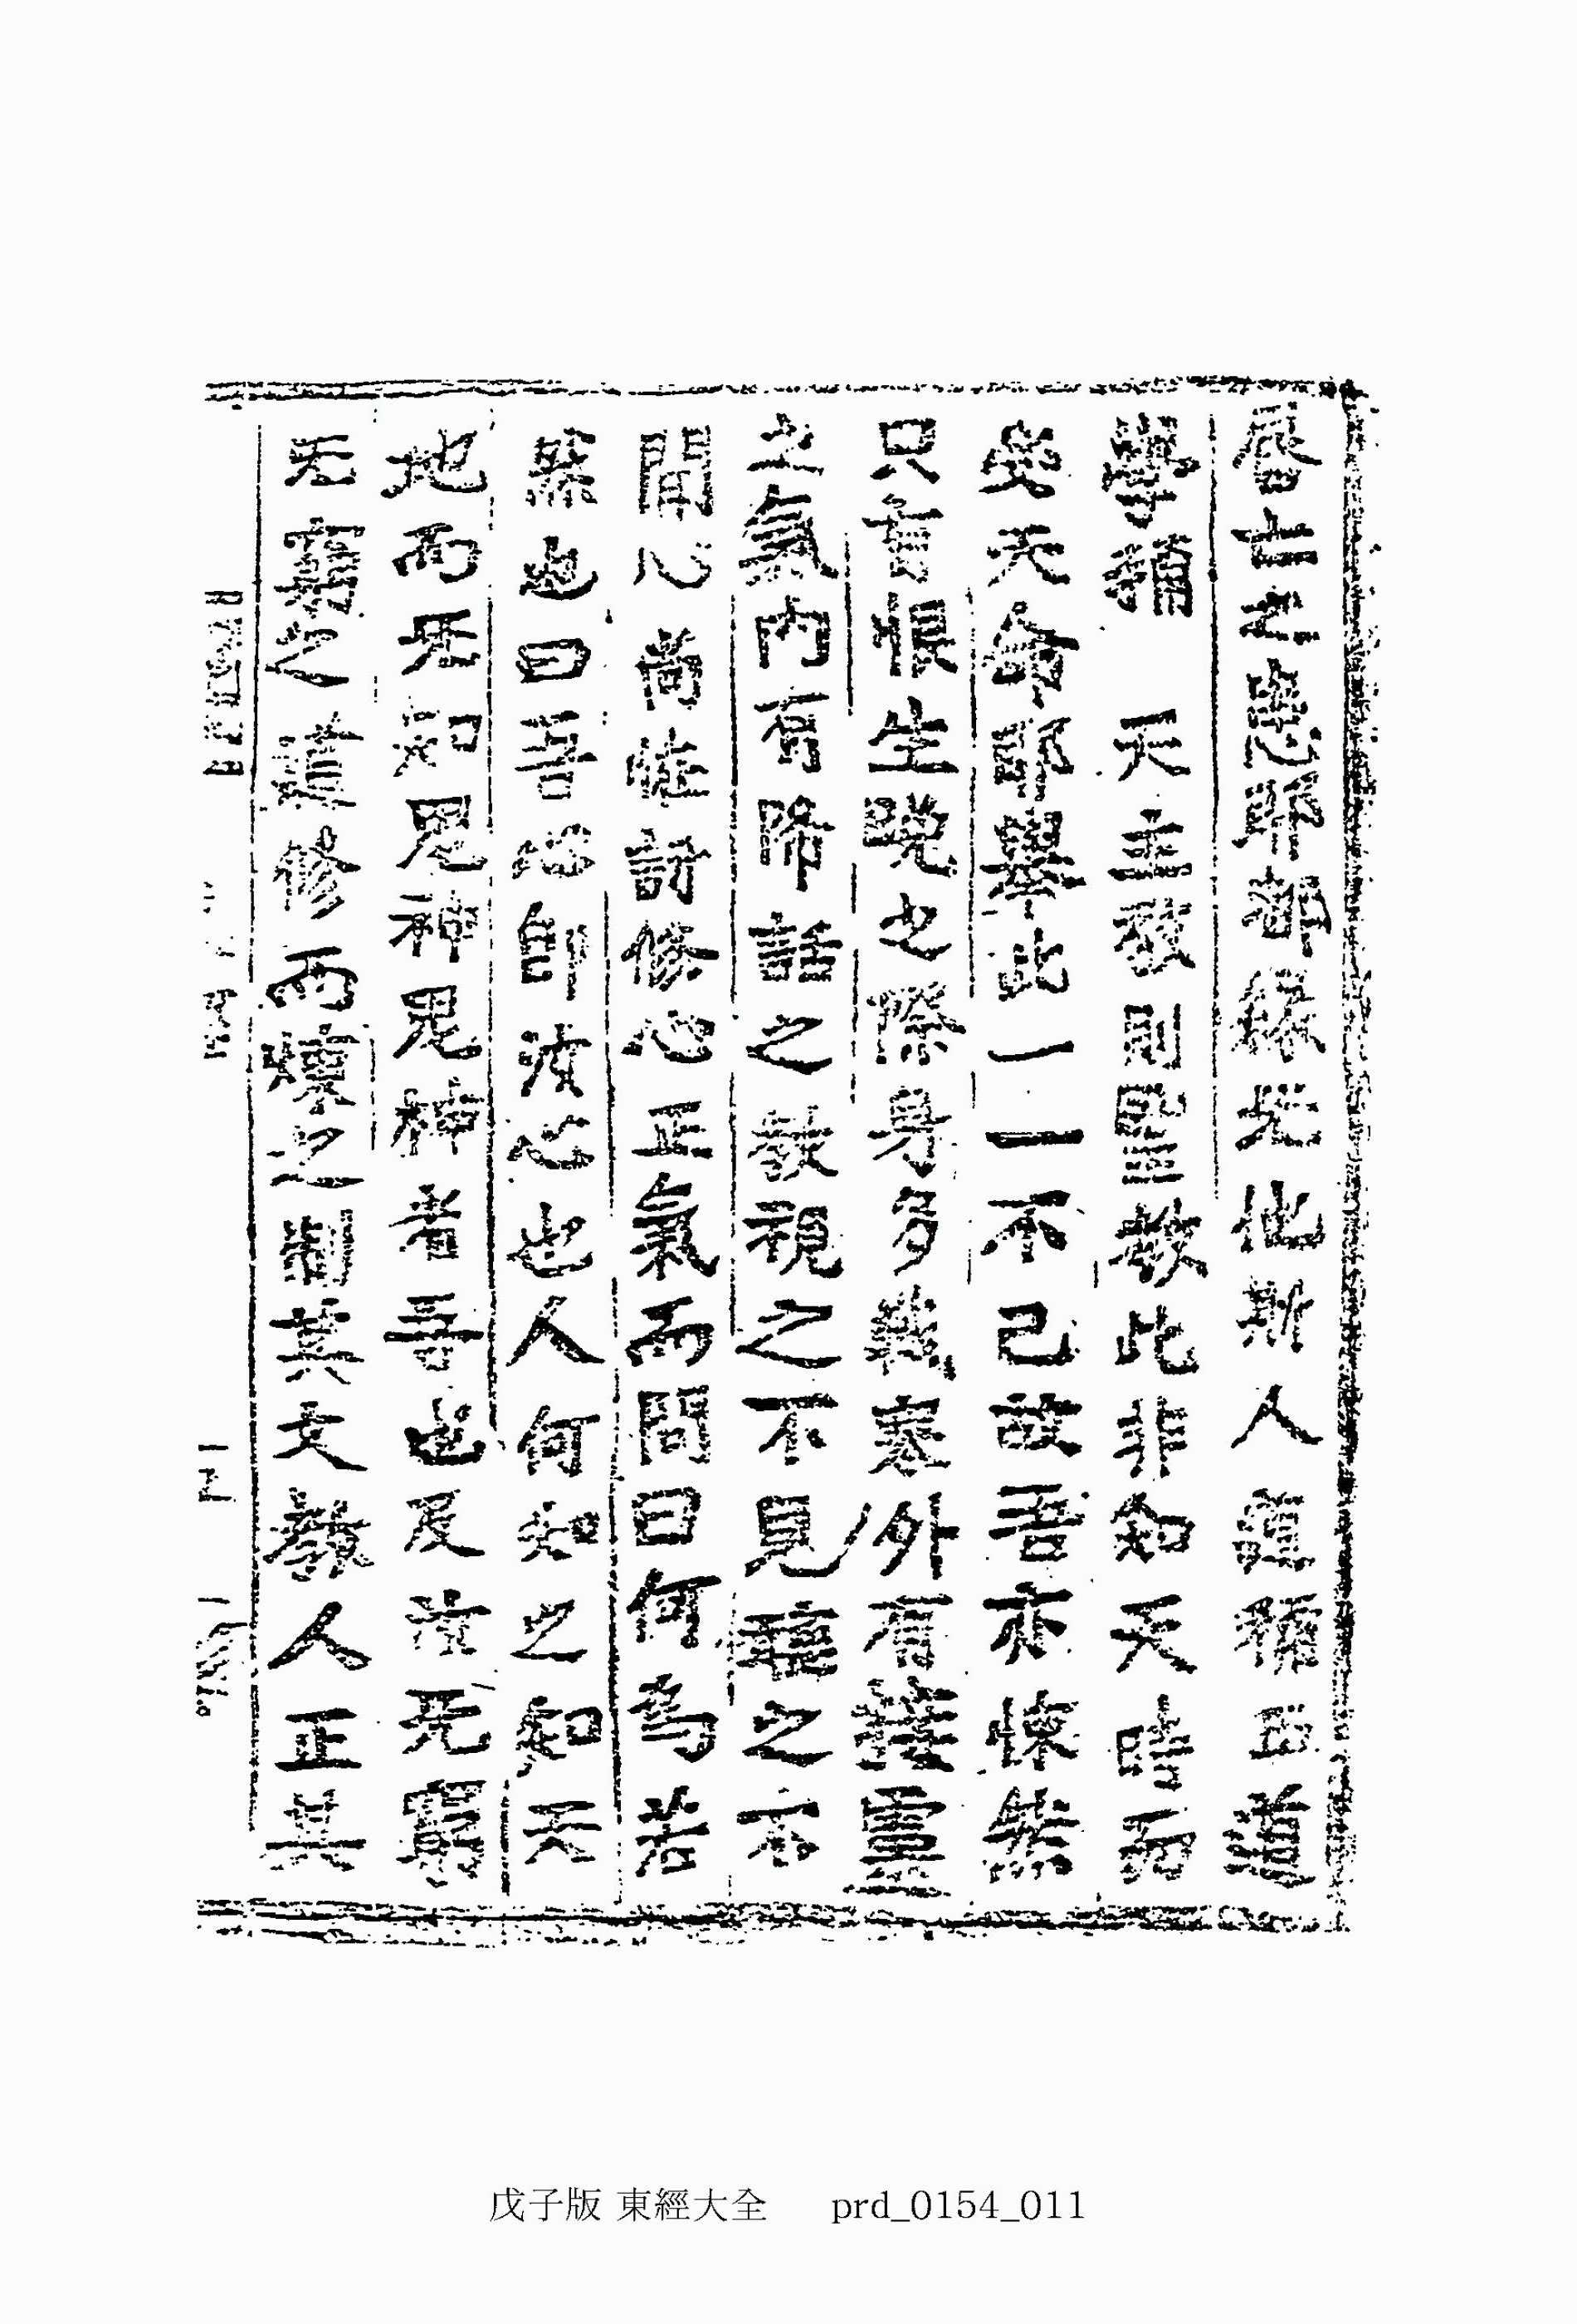 唇亡之患耶都緣無他斯人道稱西道
學稱 天主教則聖教此非知天時而
受天命耶擧此一一不已故吾亦悚然
只有恨生晩之際身多戰寒外有接靈
之氣內有降話之敎視之不見聽之不
聞心尚怪訝修心正氣而問曰何爲若
然也曰吾心卽汝心也人何知之知天
地而无知鬼神鬼神者吾也及汝无窮
无窮之道修而煉之制其文敎人正其
戊子版 東經大全 prd_0154_011